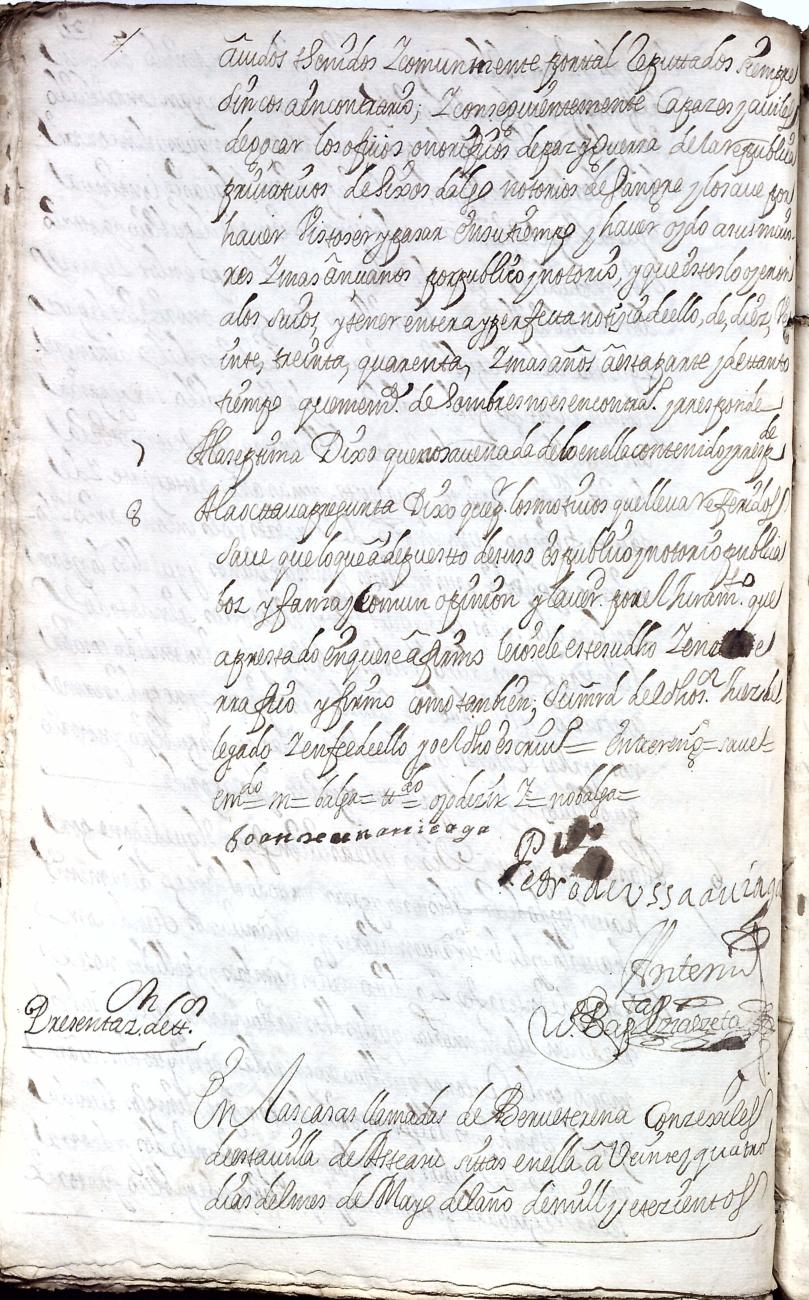 âuidos tenidos Y comunmente por tal Reputtados siempre
sin cosa en contrario; Y consequientemente Capazes y auiles
de goçar los ofiçios onorifiços de paz y guerra de la republica
priuatiuos de hixos dalgo notorios de sangre y lo saue por
hauer Visto ser y pasar en su tiempo y hauer oydo a sus maio
res Y mas ânçianos por publico y notorio, y que estos lo oyeron
a los suios, y tener entera y perfecta notiçia de ello, de, diez, Ve
inte, treinta, quarenta, Y mas años â esta parte y de tanto
tiempo que mem.ª de hombres no es en contra.º y responde
7 A la septima Dixo que no saue nada de lo en ella contenido y resp de
8 A la octaua pregunta Dixo que p.r los motiuos que lleua referidos
saue que lo que â depuesto de suso es publico y notorio publica
boz y fama y Comun opinion y la uer.d por el Juram.to que
a prestado en que se âfirmo leiosele este su dho Y en el se
rratifico y firmo como tanbien, su mrd del dho s.r Juez de
legado Y en fee de ello yo el dho escriu.º = entrereng.s = saue =
em.do = m = balga = tt.do oyo dezir Y = no balga =
Joan de unanicaga
Pedro de Ussauiaga
Ante mi
Bap.ta
Presentaz. de tt.º
En Las casas llamadas de Berueterena Conzexiles
de esta uilla de Asteasu sitas en ella â Veinte y quatro
dias del mes de Mayo del año de mill y setezientos